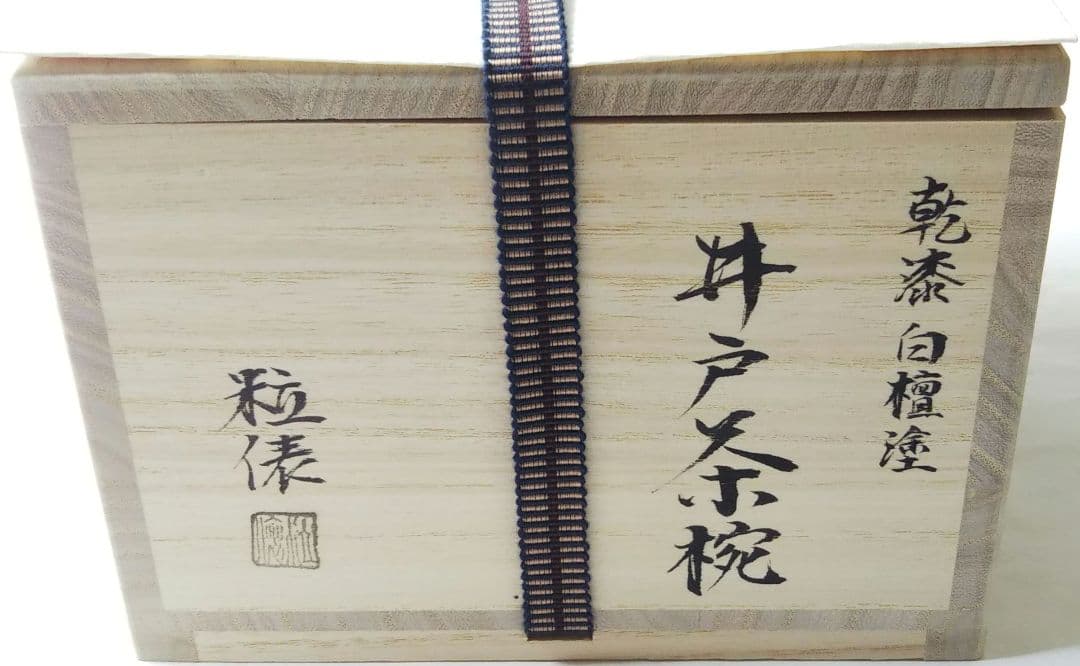 乾漆 白檀塗
井戸茶椀
粒俵